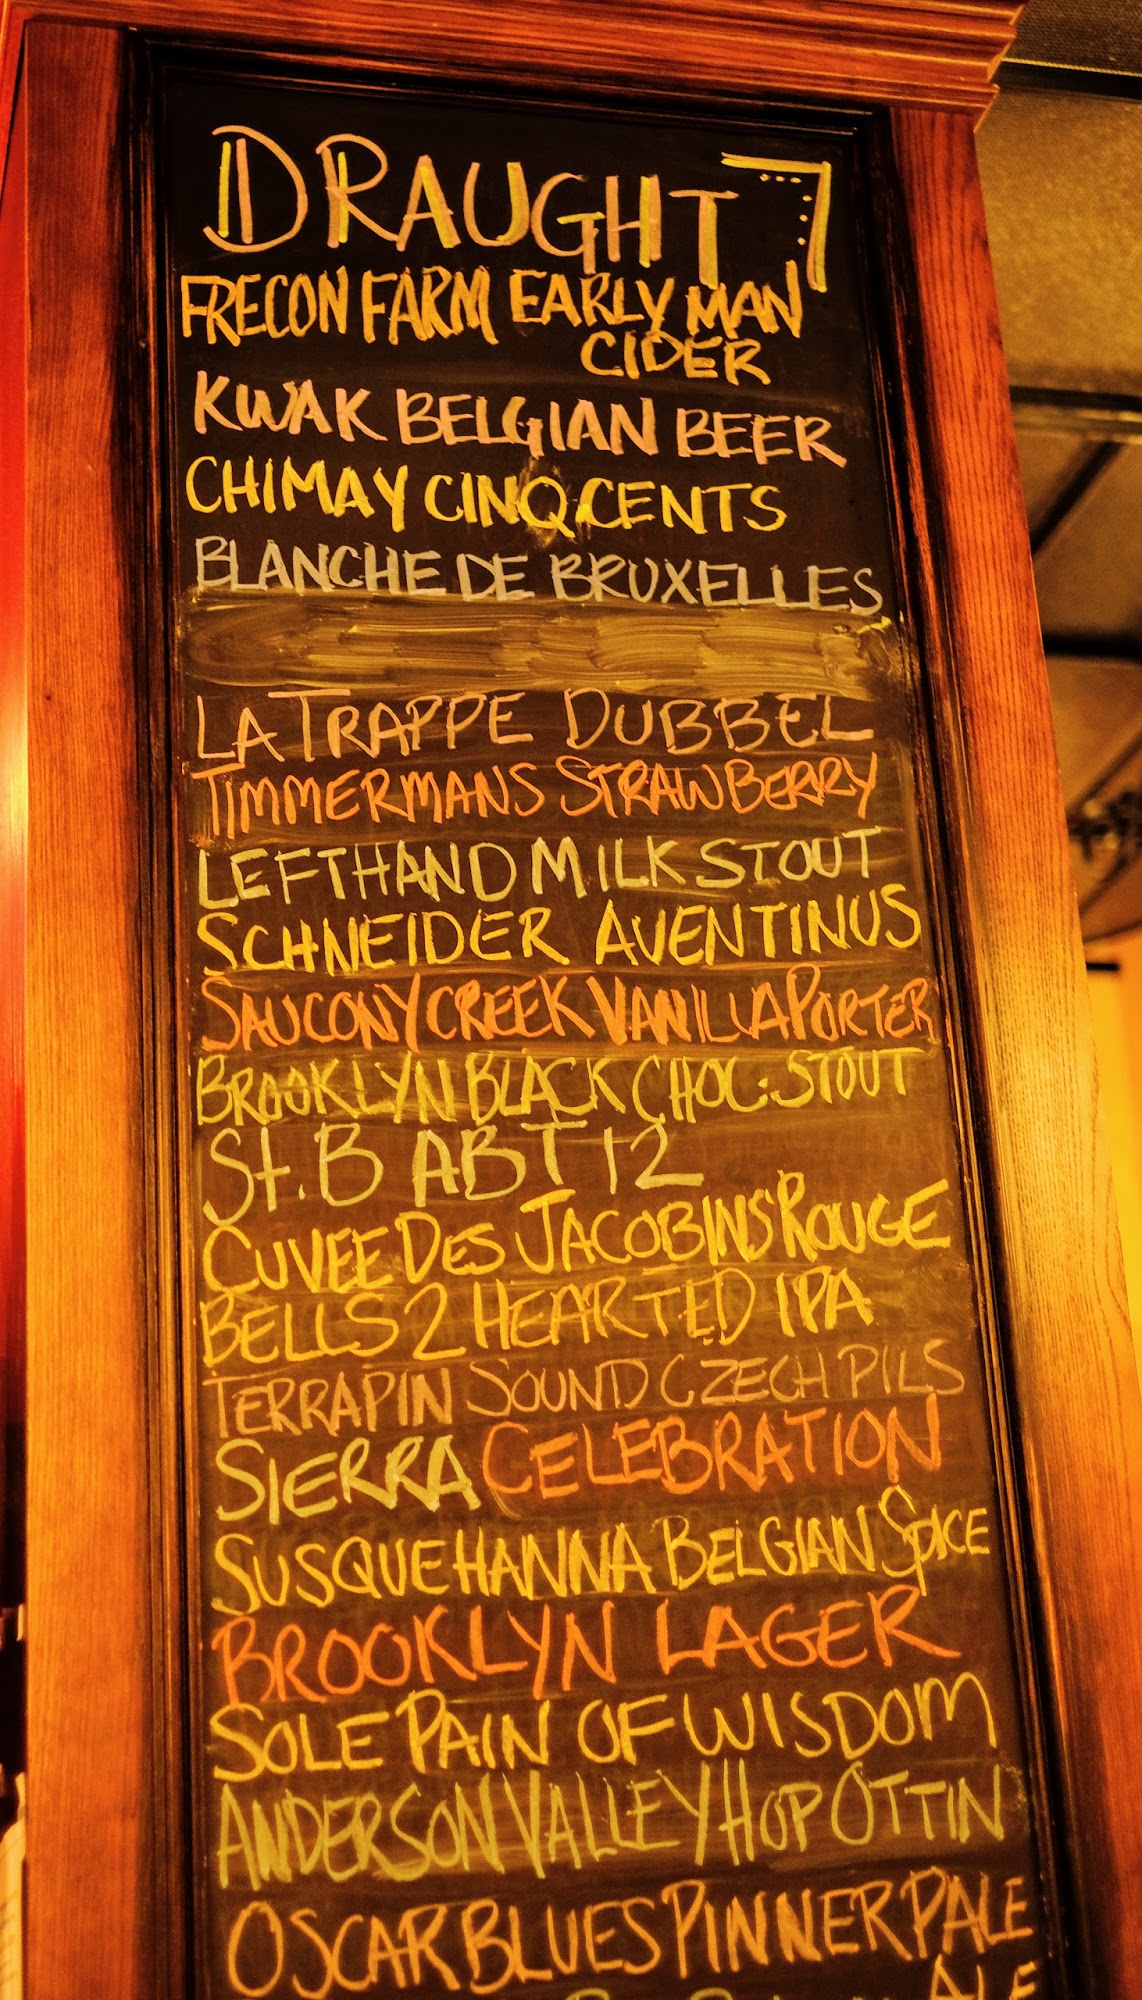 DRAUGHT
FRECON FARM EARLY MAN
CIDER
KWAK BELGIAN BEER
CHIMAY CINQ CENTS
BLANCHE DE BRUXELLES
LA TRAPPE DUBBEL
TIMMERMANS STRAWBERRY
LEFTHAND MILK STOUT
SCHNEIDER AVENTINUS
SAUCONY CREEK VANILLA PORTER
BROOKLYN BLACK CHOC. STOUT
St. B ABT 12
CUVEE DES JACOBINS ROUGE
BELLS 2 HEARTED IPA
TERRAPIN SOUND CZECH PILS
SIERRA CELEBRATION
SUSQUEHANNA BELGIAN SPICE
BROOKLYN LAGER
SOLE PAIN OF WISDOM
ANDERSON VALLEY HOP OTTIN
OSCAR BLUES PINNER PALE
ALE